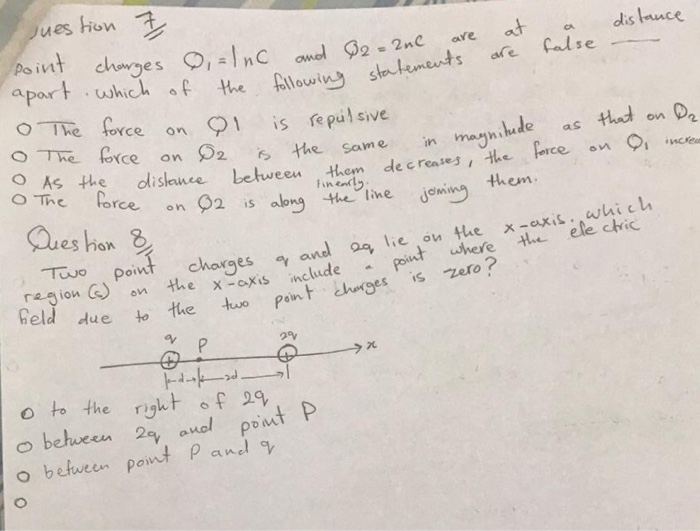 uestion 7
Point charges Q₁ = 1nC and Q2 = 2nC are at a distance
apart. which of the following statements are false
O The force on Q1 is repulsive
O The force on Q2 is the same in magnitude as that on Q2
O As the distance between them decreases, the force on Q₁ increa
linearly.
O The force on Q2 is along the line joining them.
Question 8
Two point charges q and 2q lie on the x-axis. which
region (s) on the x-axis include a point where the electric
field due to the two point charges is zero?
q P 2q
+ + x
d 2d
O to the right of 2q
O between 2q and point P
O between point P and q
O